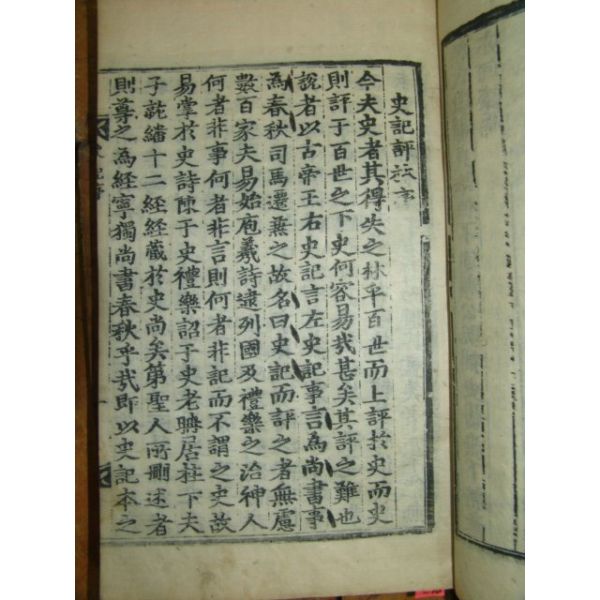 史記評林序
今夫史者其得失之林乎百世而上評於史而史
則評于百世之下史何容易哉甚矣其評之難也
說者以古帝王右史記言左史記事言為尚書事
為春秋司馬遷兼之故名曰史記而評之者無慮
數百家夫易始庖羲詩逮列國及禮樂之治神人
何者非事何者非言則何者非記而不謂之史故
易掌於史詩陳于史禮樂詔于史老聃居柱下夫
子訖繙十二經經藏於史尚矣第聖人所刪述者
則尊之為經寧獨尚書春秋乎哉即以史記本之